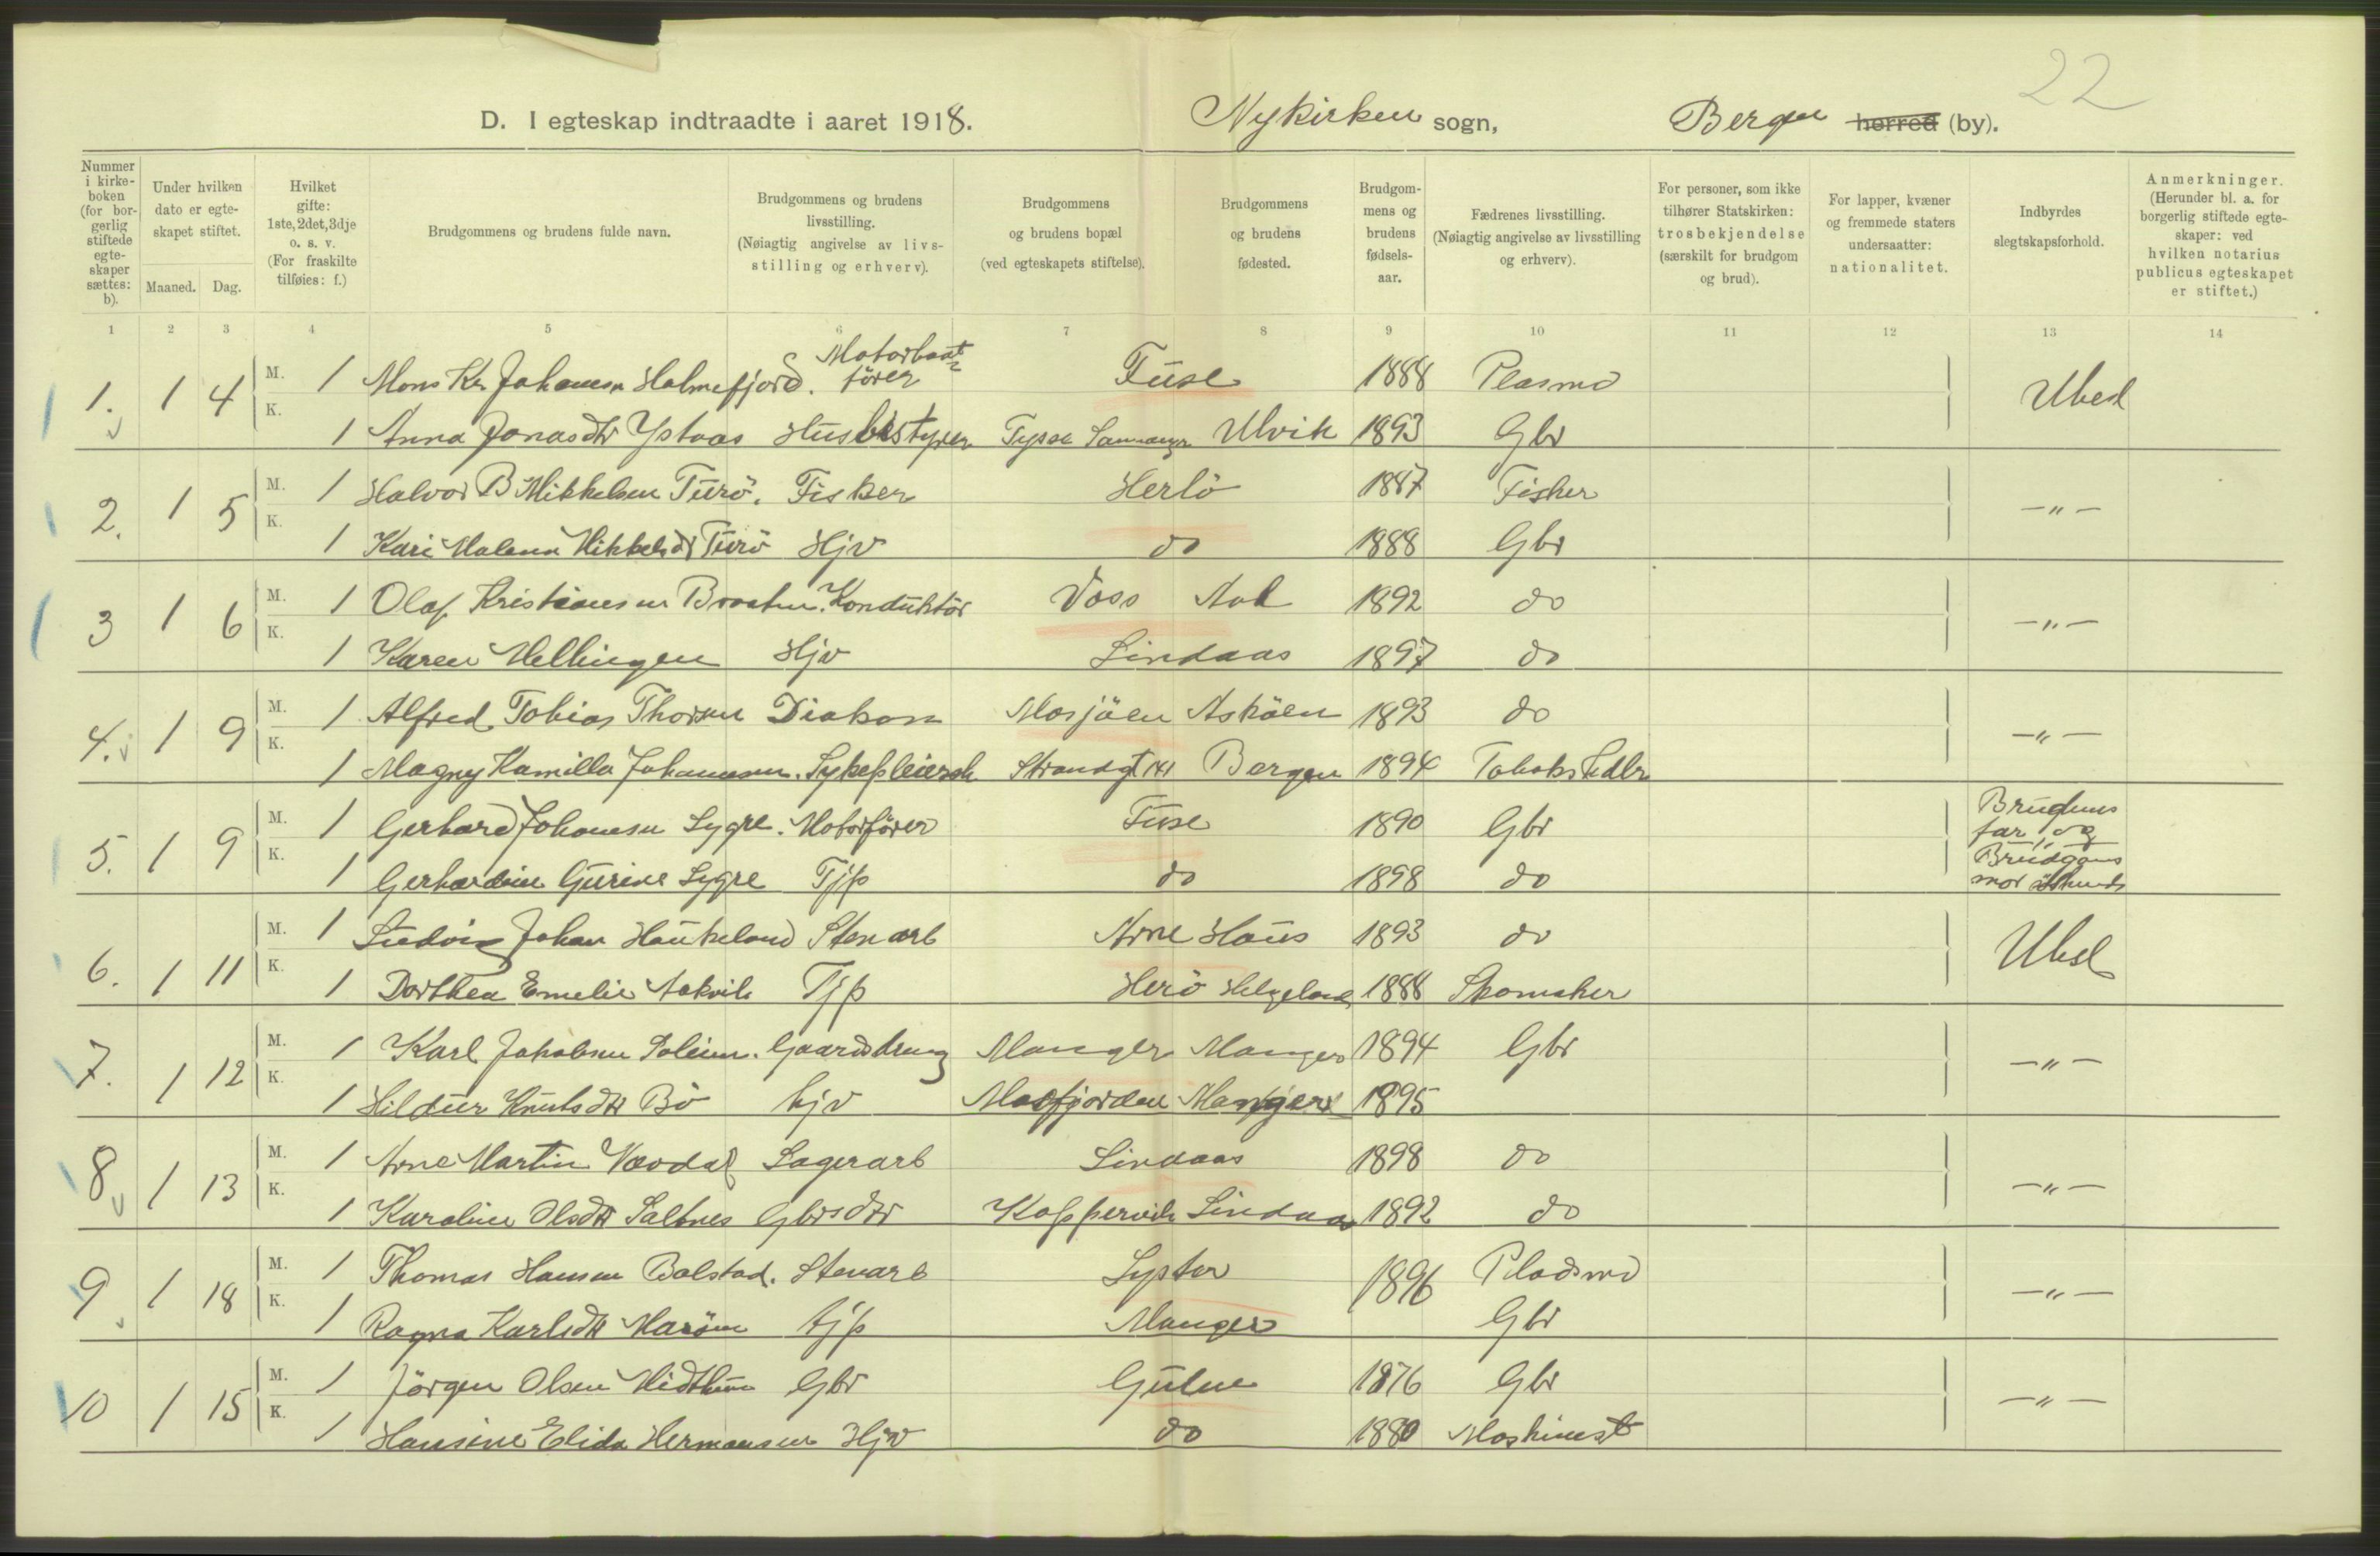 22
D. I egteskap indtraadte i aaret 1918. Nykirken sogn, Bergen herred (by).
Nummer i kirkeboken (for borgerlig stiftede egteskaper sættes: b).
Under hvilken dato er egteskapet stiftet.
Maaned. Dag.
Hvilket gifte: 1ste, 2det, 3dje o. s. v. (For fraskilte tilføies: f.)
Brudgommens og brudens fulde navn.
Brudgommens og brudens livsstilling. (Nøiagtig angivelse av livsstilling og erhverv).
Brudgommens og brudens bopæl (ved egteskapets stiftelse).
Brudgommens og brudens fødested.
Brudgommens og brudens fødselsaar.
Fædrenes livsstilling. (Nøiagtig angivelse av livsstilling og erhverv).
For personer, som ikke tilhører Statskirken: trosbekjendelse (særskilt for brudgom og brud).
For lapper, kvæner og fremmede staters undersaatter: nationalitet.
Indbyrdes slegtskapsforhold.
Anmerkninger. (Herunder bl. a. for borgerlig stiftede egteskaper: ved hvilken notarius publicus egteskapet er stiftet.)
1 2 3 4 5 6 7 8 9 10 11 12 13 14
1. 1 4 M. 1 Mons Kr. Johansen Holmefjord. Motorbaatfører Fuse 1888 Plasmd Ubesl
K. 1 Anna Jonasdtr Ystaas Husbestyrer Tysse Samnanger Ulvik 1893 Gbr
2. 1 5 M. 1 Halvor B Mikkelsen Turö. Fisker Herlö 1887 Fisker —"—
K. 1 Kari Malena Mikkelsdtr Turö Hjv do 1888 Gbr
3 1 6 M. 1 Olaf Kristiansen Braaten. Konduktör Voss Aal 1892 do —"—
K. 1 Karen Mellingen Hjv Lindaas 1897 do
4. 1 9 M. 1 Alfred Tobias Thorsen Diakon Mosjöen Asköen 1893 do —"—
K. 1 Magny Kamilla Johannesen. Sykepleiersk Strandgt 141 Bergen 1894 Tobakshdlr
5. 1 9 M. 1 Gerhard Johanesen Lygre. Motorförer Fuse 1890 Gbr Brudens far og Brudgoms mor
K. 1 Gerhardine Gurine Lygre Tjp do 1898 do
6. 1 11 M. 1 Ludvig Johan Haukeland Stenarb Arne Haus 1893 do Ubesl
K. 1 Dorthea Emelie Aakvik Tjp Herö Helgeland 1888 Skomaker
7. 1 12 M. 1 Karl Jakobsen Soleim. Gaardsdreng Manger Manger 1894 Gbr —"—
K. 1 Hildur Knutsdtr Bö hjv Masfjorden Manger 1895
8 1 13 M. 1 Arne Martin Vavdal Lagerarb Lindaas 1898 do —"—
K. 1 Karoline Olsdtr Saltnes Gbrsdtr Koppervik Lindaas 1892 do
9 1 18 M. 1 Thomas Hansen Bolstad. Stenarb Lyster 1896 Pladsmd —"—
K. 1 Ragna Karlsdtr Maröen tjp Manger Gbr
10 1 15 M. 1 Jörgen Olsen Midthun Gbr Gulen 1876 Gbr —"—
K. 1 Hansine Elida Hermansen Hjv do 1880 Maskinist